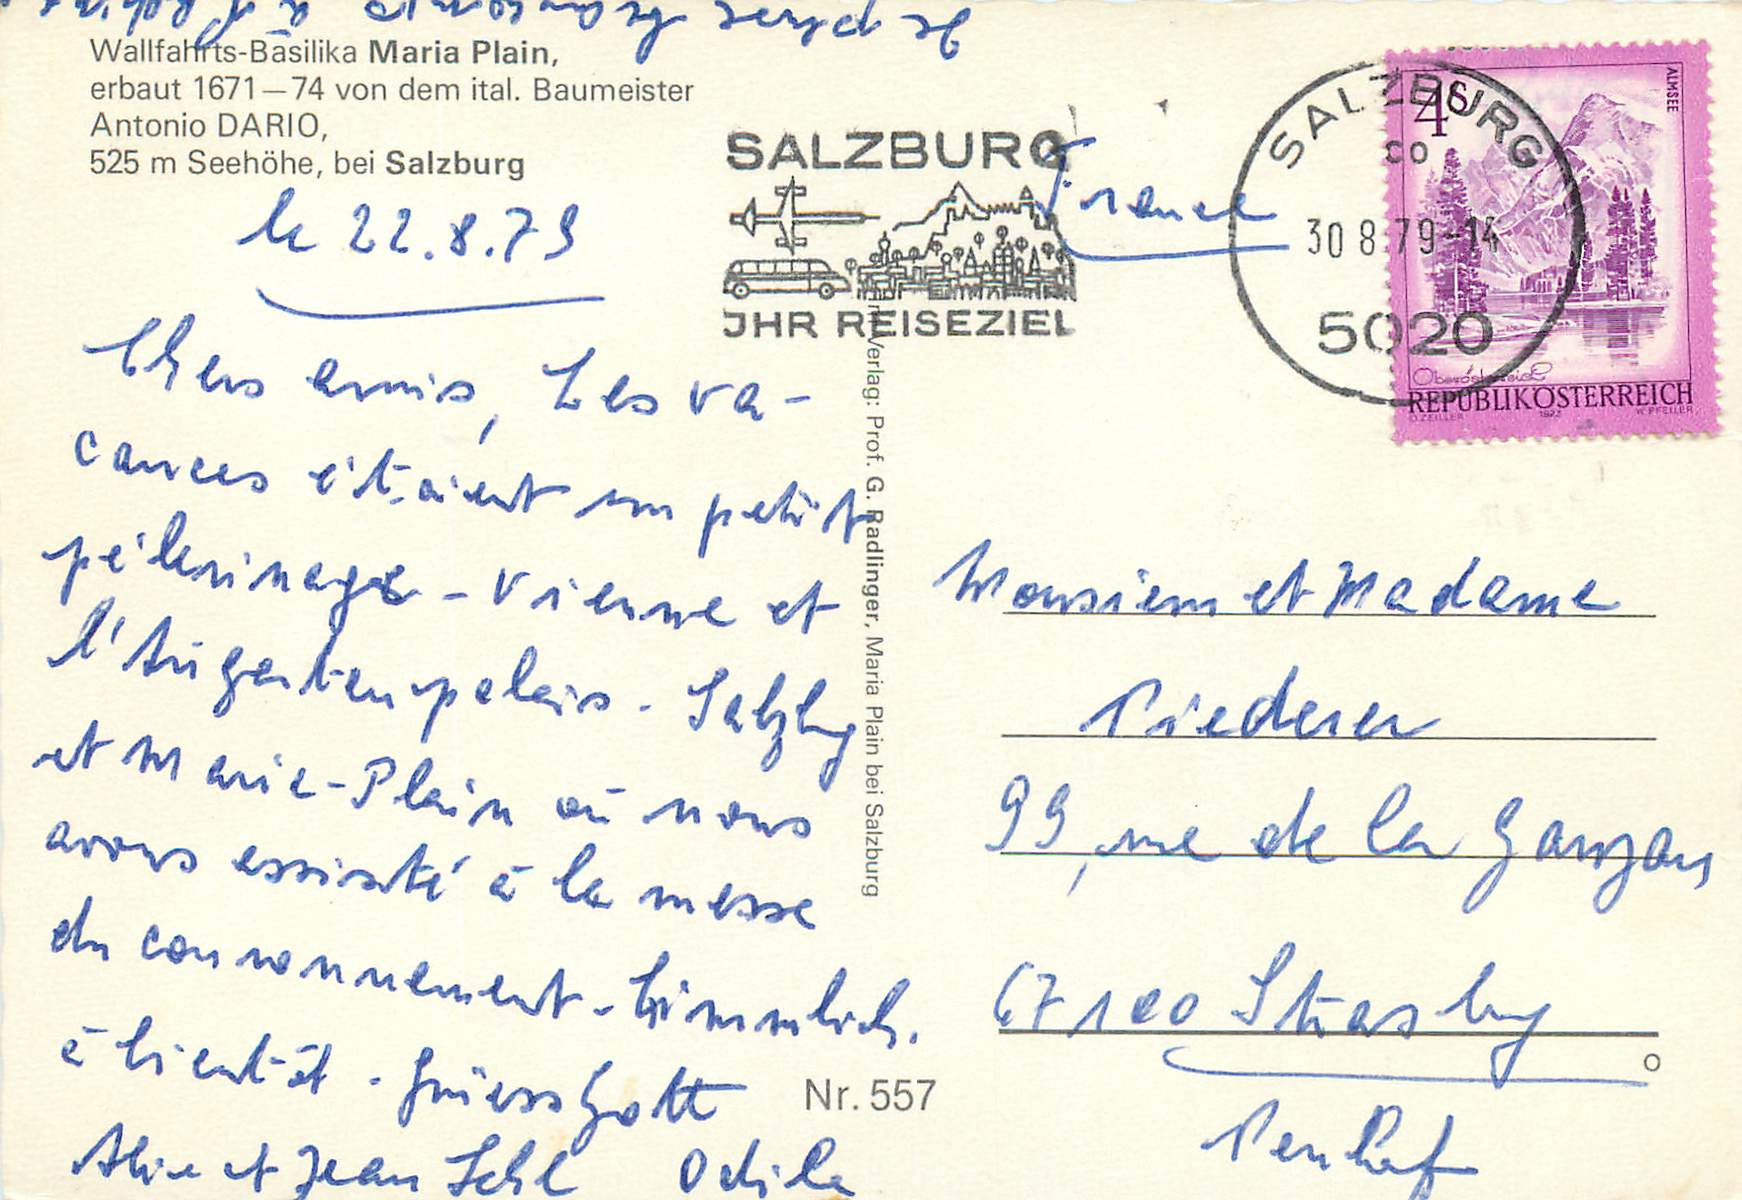 Wallfahrts-Basilika Maria Plain,
erbaut 1671—74 von dem ital. Baumeister
Antonio DARIO,
525 m Seehöhe, bei Salzburg
le 22.8.79
Chers amis, Les va-
cances étaient un petit
pélerinage - Vienne et
l'Augartenpalais - Salzbg
et Maria-Plain où nous
avons assisté à la messe
du couronnement - himmlich.
à bientôt - Grüess Gott
Alice et Jean Sehl Odile
Verlag: Prof. G. Radlinger, Maria Plain bei Salzburg
Nr. 557
SALZBURG
JHR REISEZIEL
France
SALZBURG
30 8 79-14
5020
4 S
ALMSEE
Oberösterreich
REPUBLIK ÖSTERREICH
O. ZEILLER 1973 W. PFEILER
Monsieur et Madame
Riederer
99, rue de la Ganzau
67100 Strasbg
Neuhof